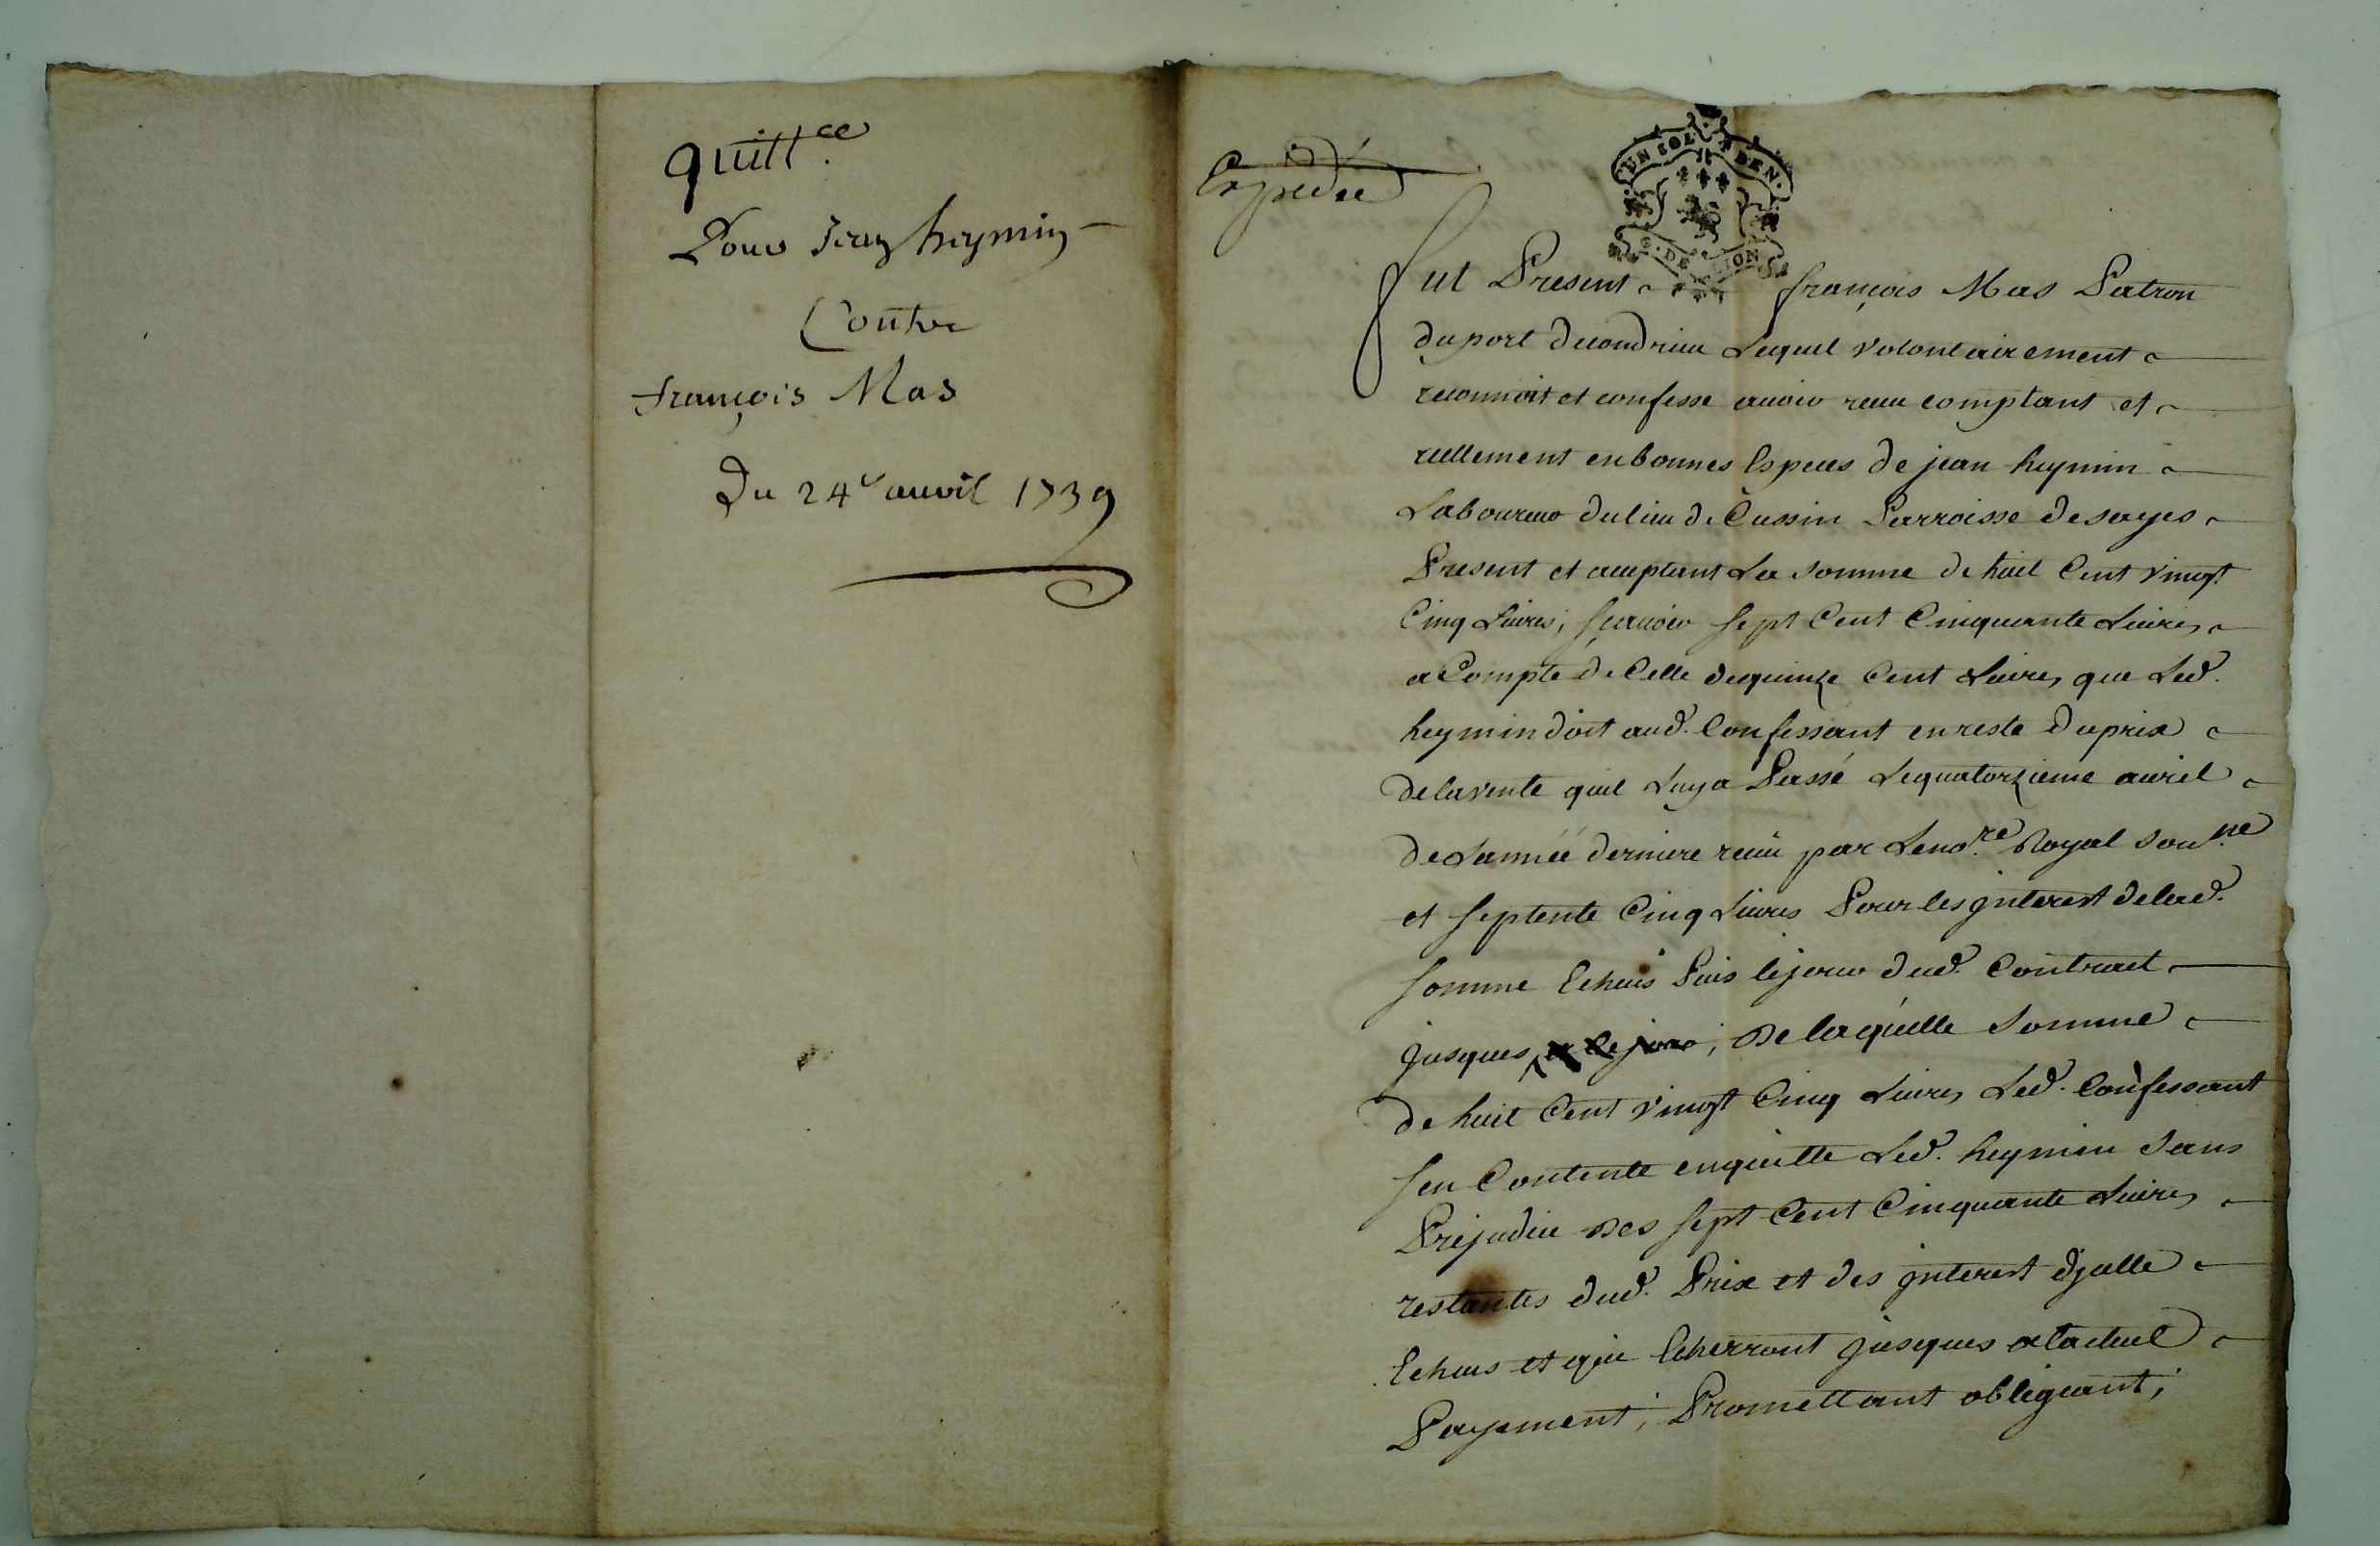 quitt.ce
Pour Jean heymin
Contre
françois Mas
Du 24e avril 1739
Expediée
UN SOL DEN.
G. DE LION
fut Present françois Mas Patron
du port de condrieu Lequel volontairement
reconnoit et confesse avoir receu comptant et
reellement en bonnes Especes de jean heymin
Laboureur du lieu de Cussin Parroisse de sayes
Present et acceptant La somme de huit Cent vingt
Cinq Livres, sçavoir sept Cent Cinquante Livres
a Compte de Celle de quinze Cent Livres, que Led.
heymin doit aud. Confessant en reste du prix
de la vente quil Luy a Passé Le quatorzieme avril
de Lannéé derniere receu par Le no.re Royal sou.ne
et septente Cinq Livres Pour les jnterest de lad.
somme Echeus Puis le jour dud. Contract
jusques a ce jour, De laquelle somme
de huit Cent vingt Cinq Livres Led. Confessant
sen Contente en quitte Led. heymin sans
Prejudice des sept Cent Cinquante Livres
restantes dud. Prix et des jnterest djcelle
Echeus et qui Echerront jusques a lactuel
Payement, Promettant obligeant,